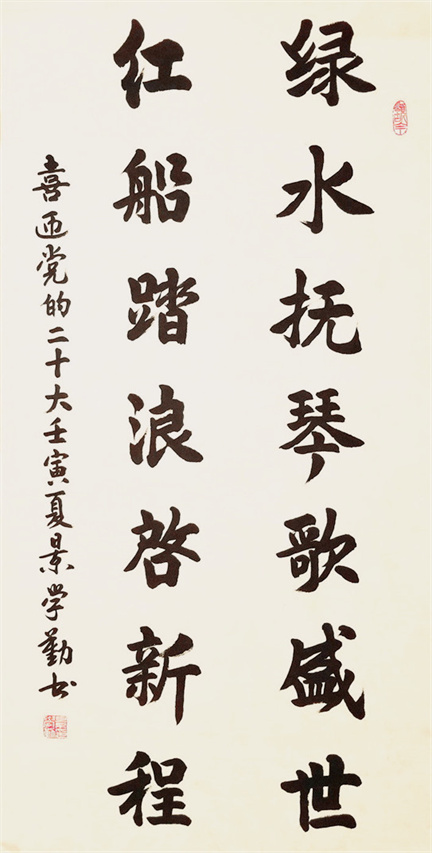 绿水抚琴歌盛世
红船踏浪启新程
喜迎党的二十大壬寅夏景学勤书